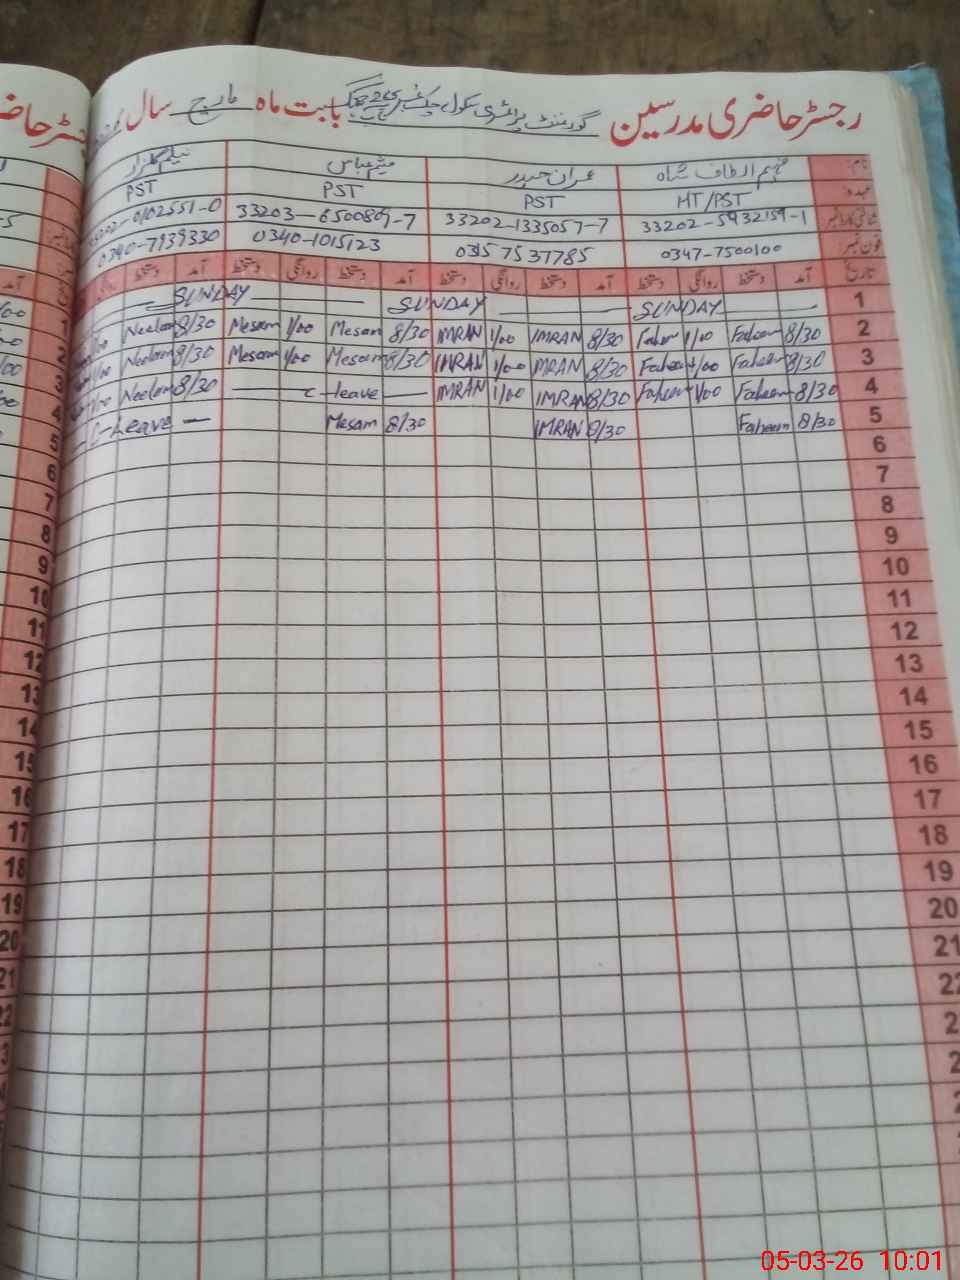 رجسٹر حاضری مدرسین گورنمنٹ پرائمری سکول چک نمبر بابت ماہ مارچ سال
نام: فہیم الطاف شاہ عمران حیدر میثم عباس نیلم گلزار
عہدہ HT/PST PST PST PST
شناختی کارڈ نمبر 33202-5932159-1 33202-1335057-7 33203-6500809-7 33202-0102551-0
فون نمبر 0347-7500100 0315 7537785 0340-1015123 0340-7939330
تاریخ آمد دستخط روانگی دستخط آمد دستخط روانگی دستخط آمد دستخط روانگی دستخط آمد دستخط روانگی
1 SUNDAY SUNDAY SUNDAY
2 8/30 Faheem 1/00 Faheem 8/30 IMRAN 1/00 IMRAN 8/30 Mesam 1/00 Mesam 8/30 Neelam
3 8/30 Faheem 1/00 Faheem 8/30 IMRAN 1/00 IMRAN 8/30 Mesam 1/00 Mesam 8/30 Neelam 1/00
4 8/30 Faheem 1/00 Faheem 8/30 IMRAN 1/00 IMRAN C-leave 8/30 Neelam 1/00
5 8/30 Faheem 8/30 IMRAN 8/30 Mesam C-Leave
6
7
8
9
10
11
12
13
14
15
16
17
18
19
20
21
05-03-26 10:01